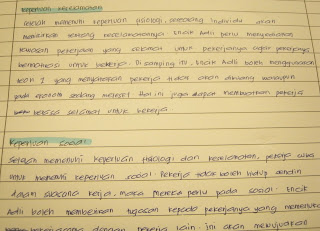 Keperluan keselamatan
Setelah memenuhi keperluan fisiologi, seseorang individu akan
memikirkan tentang keselamatannya. Encik Adli perlu menyediakan
suasana pekerjaan yang selamat untuk pekerjanya supaya pekerjanya
bermotivasi untuk bekerja. Di samping itu, Encik Adli boleh menggunakan
teori Z yang menyatakan pekerja tidak akan dibuang walaupun
pada ekonomi sedang meleset. Hal ini juga dapat membuatkan pekerja
berasa selamat untuk bekerja.
Keperluan sosial
Selepas memenuhi keperluan fisiologi dan keselamatan, pekerja cuba
untuk memenuhi keperluan sosial. Pekerja tidak boleh hidup sendiri
dalam suasana kerja, maka mereka perlu pada sosial. Encik
Adli boleh memberikan tugasan kepada pekerjanya yang memerlukan
dengan pekerja lain. Ini akan mewujudkan